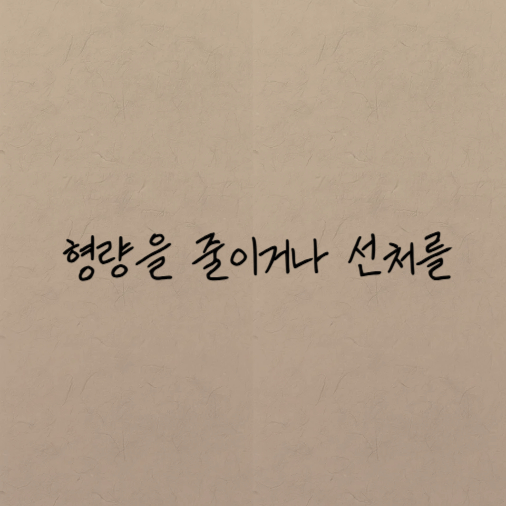 형량을 줄이거나 선처를